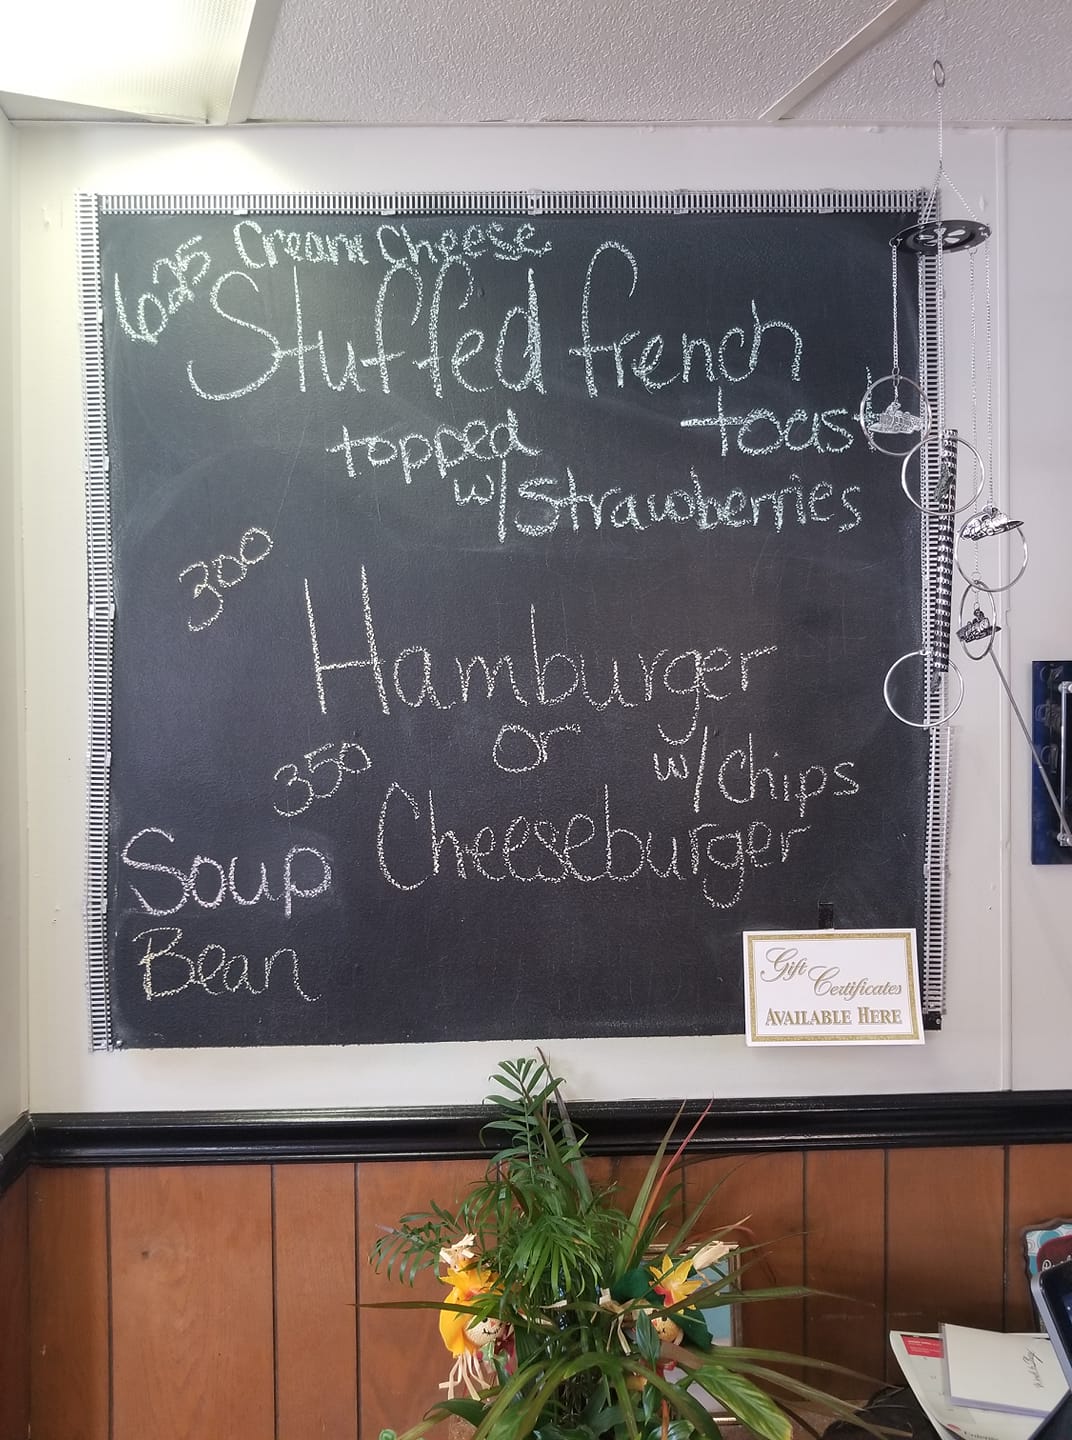 625 Cream Cheese
Stuffed french
toast
topped
w/Strawberries
300
Hamburger
or
w/Chips
350
Cheeseburger
Soup
Bean
Gift
Certificates
AVAILABLE HERE